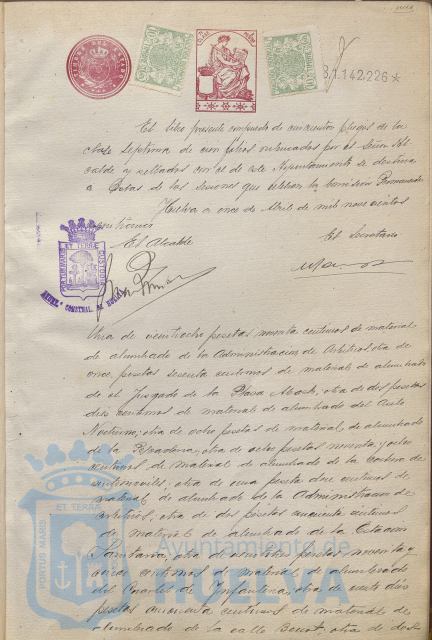 TIMBRE DEL ESTADO
B.1.142.226 *
El libro presente compuesto de cincuenta pliegos de la
clase septima de cien folios rubricados por el Señor Al-
calde y sellados con el de este Ayuntamiento se destina
a Actas de las sesiones que celebre la Comisión Permanente
Huelva a once de Abril de mil novecientos
El Alcalde
El Secretario
PORTUS MARIS ET TERRÆ CUSTODIA
AYUNT.º CONSTNAL. DE HUELVA
Otra de veintiocho pesetas noventa centimos de material
de alumbrado de la Administracion de Arbitrios, otra de
once pesetas sesenta centimos de material de alumbrado
de el Juzgado de la Plaza otra de dos pesetas
diez centimos de material de alumbrado del Asilo
Nocturno, otra de ocho pesetas de material de alumbrado
de la Pescaderia, otra de ocho pesetas noventa y ocho
centimos de material de alumbrado de la
automoviles, otra de una peseta doce centimos de
material de alumbrado de la Administracion de
arbitrios, otra de dos pesetas cincuenta centimos
de material de alumbrado de la Estacion
Sanitaria, otra de pesetas noventa y
centimos de material de alumbrado
del Cuartel de Infanteria, otra de
pesetas cincuenta centimos de material de
alumbrado de la calle otra de dos
PORTUS MARIS
ET TERRÆ
Ayuntamiento de
HUELVA